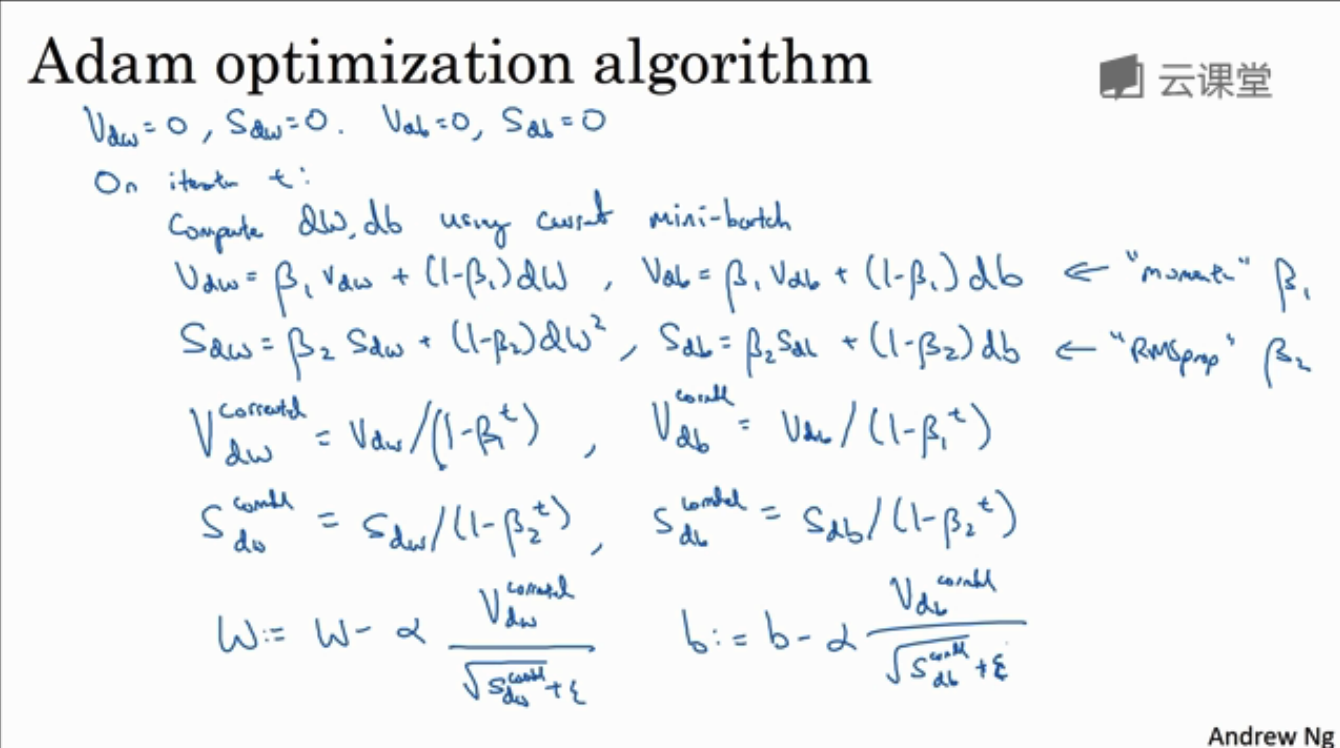 Adam optimization algorithm
云课堂
V_dw = 0, S_dw = 0. V_db = 0, S_db = 0
On iteratn t:
Compute dW, db using current mini-batch
V_dw = β₁ V_dw + (1-β₁) dW , V_db = β₁ V_db + (1-β₁) db ← "moment" β₁
S_dw = β₂ S_dw + (1-β₂) dW² , S_db = β₂ S_db + (1-β₂) db ← "RMSprop" β₂
V_dw^corrected = V_dw/(1-β₁^t) , V_db^corrected = V_db/(1-β₁^t)
S_dw^corrected = S_dw/(1-β₂^t) , S_db^corrected = S_db/(1-β₂^t)
W := W - α V_dw^corrected / (√S_dw^corrected + ε) b := b - α V_db^corrected / (√S_db^corrected + ε)
Andrew Ng